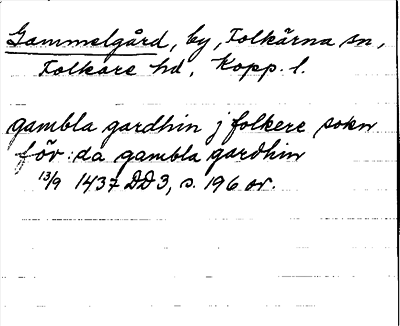 Gammelgård, by, Folkärna sn,
Folkare hd, Kopp. l.
gambla gardhin j folkere sokn
föv: da gambla gardhin
13/9 1437 DD3, s. 196 or.